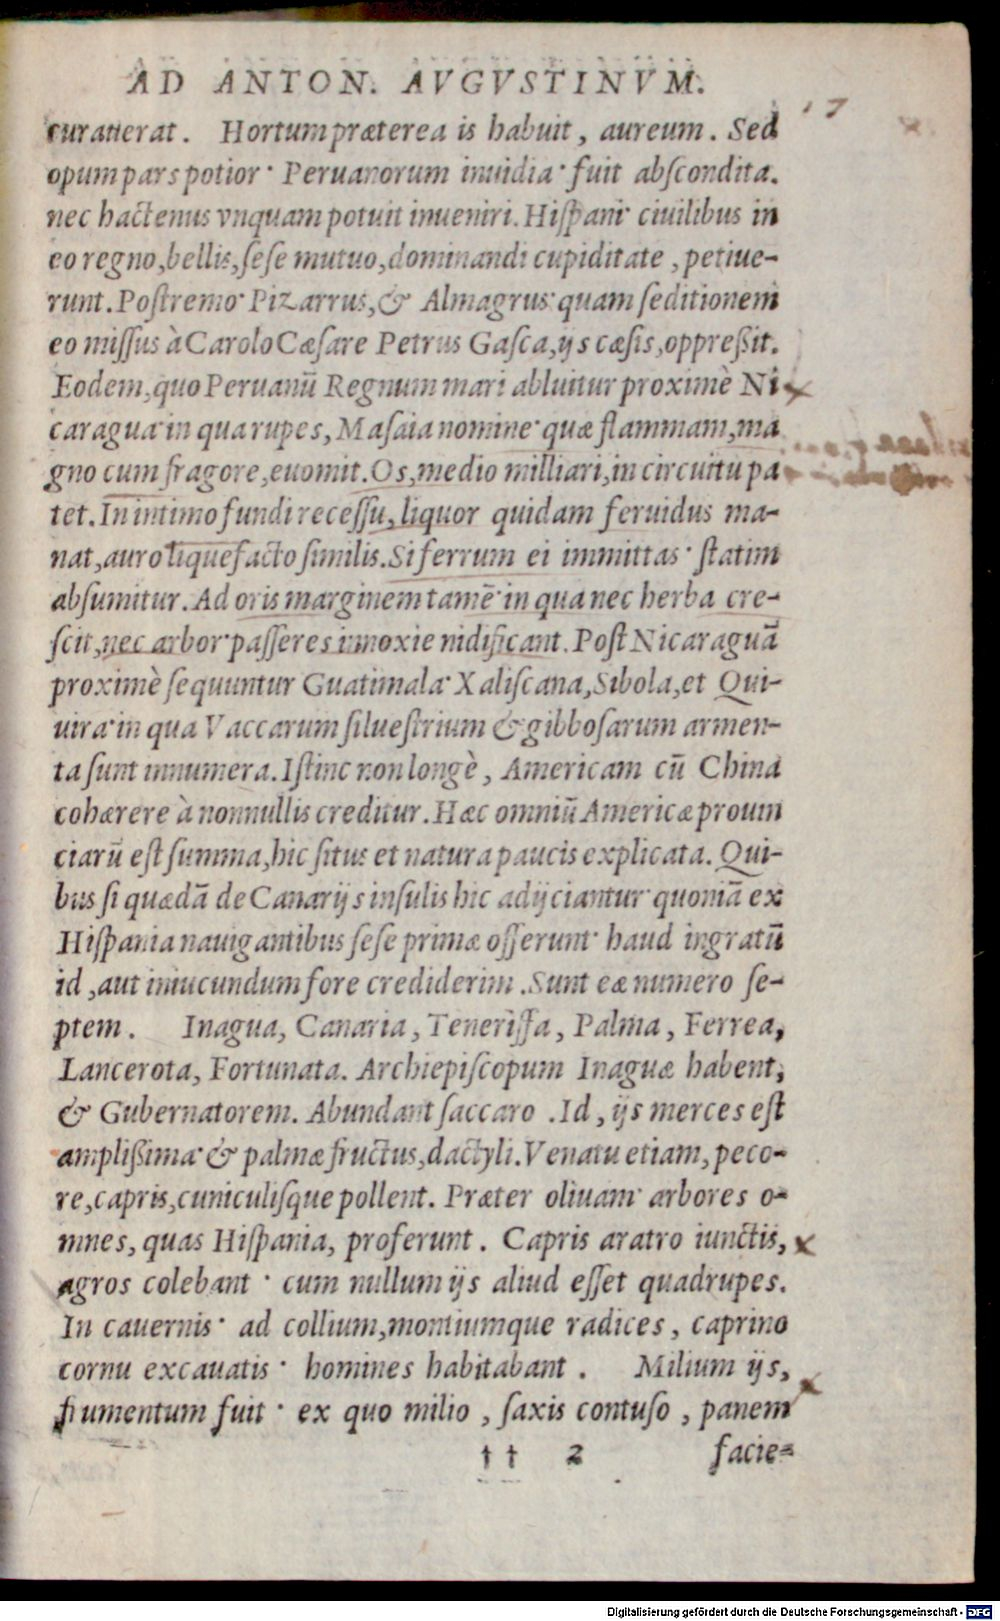 AD ANTON. AVGVSTINVM.
17
curauerat. Hortum præterea is habuit, aureum. Sed
opum pars potior· Peruanorum inuidia· fuit abscondita.
nec hactenus vnquam potuit inueniri. Hispani· ciuilibus in
eo regno, bellis, sese mutuo, dominandi cupiditate, petiue-
runt. Postremo· Pizarrus, & Almagrus· quam seditionem
eo missus à Carolo Cæsare Petrus Gasca, ijs cæsis, oppreßit.
Eodem, quo Peruanū Regnum mari abluitur proximè Ni
caragua· in qua rupes, Masaia nomine· quæ flammam, ma
gno cum fragore, euomit. Os, medio milliari, in circuitu pa
tet. In intimo fundi recessu, liquor quidam feruidus ma-
nat, auro liquefacto similis. Si ferrum ei immittas· statim
absumitur. Ad oris marginem tamē· in qua nec herba cre-
scit, nec arbor· passeres innoxie nidificant. Post Nicaraguā
proximè sequuntur Guatimala· Xaliscana, Sibola, et Qui-
uira· in qua Vaccarum siluestrium & gibbosarum armen-
ta sunt innumera. Istinc non longè, Americam cū China
cohærere à nonnullis creditur. Hæc omniū Americæ prouin
ciarū est summa, hic situs et natura paucis explicata. Qui-
bus si quædā de Canarijs insulis hic adijciantur· quoniā ex
Hispania nauigantibus sese primæ offerunt· haud ingratū
id, aut iniucundum fore crediderim. Sunt eæ numero se-
ptem. Inagua, Canaria, Teneriffa, Palma, Ferrea,
Lancerota, Fortunata. Archiepiscopum Inaguæ habent,
& Gubernatorem. Abundant saccaro. Id, ijs merces est
amplißima· & palmæ fructus, dactyli. Venatu etiam, peco-
re, capris, cuniculisque pollent. Præter oliuam· arbores o-
mnes, quas Hispania, proferunt. Capris aratro iunctis,
agros colebant· cum nullum ijs aliud esset quadrupes.
In cauernis· ad collium, montiumque radices, caprino
cornu excauatis· homines habitabant. Milium ijs,
frumentum fuit· ex quo milio, saxis contuso, panem
†† 2 facie-
Digitalisierung gefördert durch die Deutsche Forschungsgemeinschaft - DFG